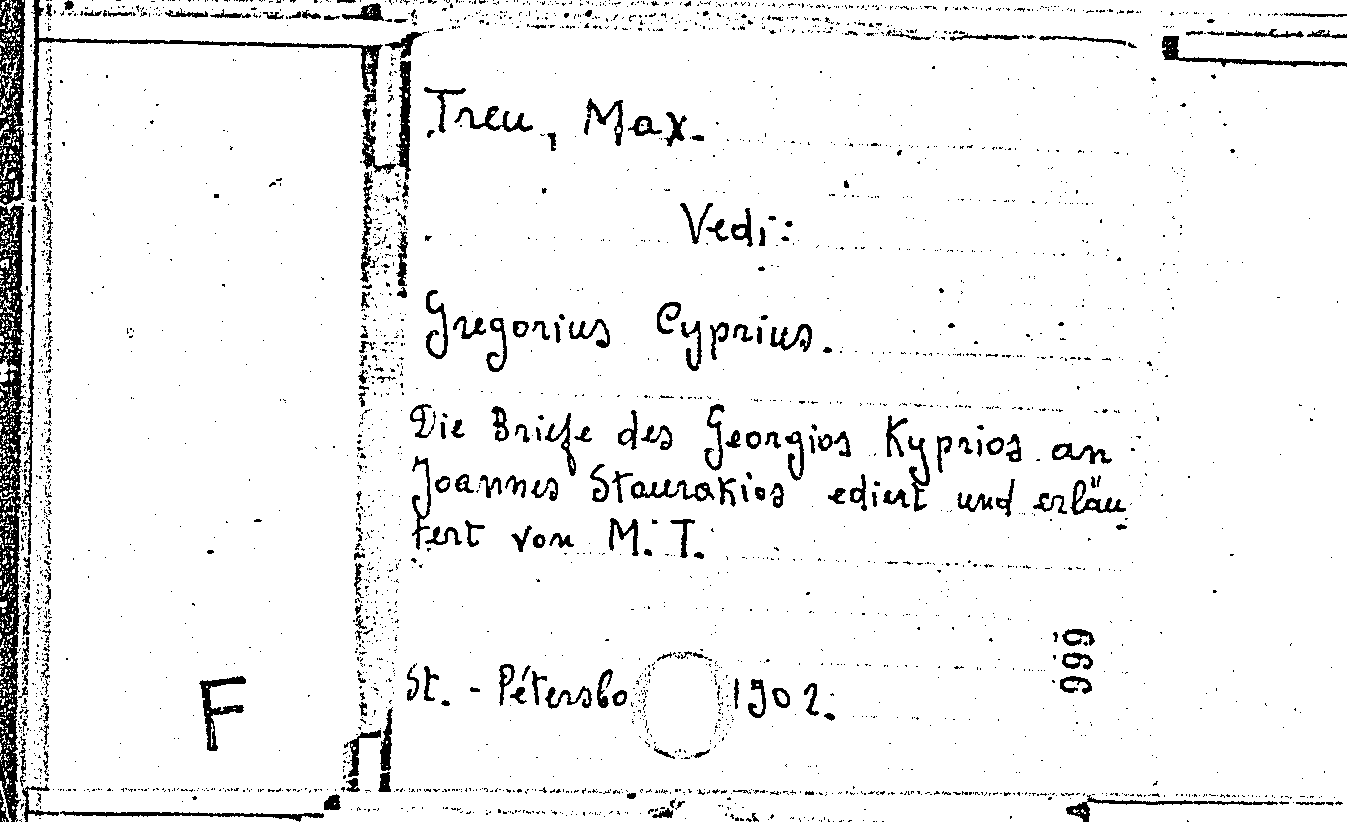 Treu, Max.
Vedi:
Gregorius Cyprius.
Die Briefe des Georgios Kyprios an
Joannes Staurakios ediert und erläu-
tert von M. T.
St. - Pétersbo 1902.
F
999